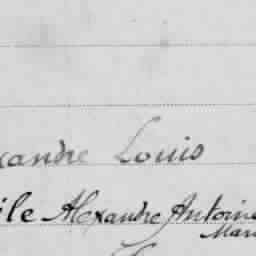 xandre Louis
ile Alexandre Antoine
Mari